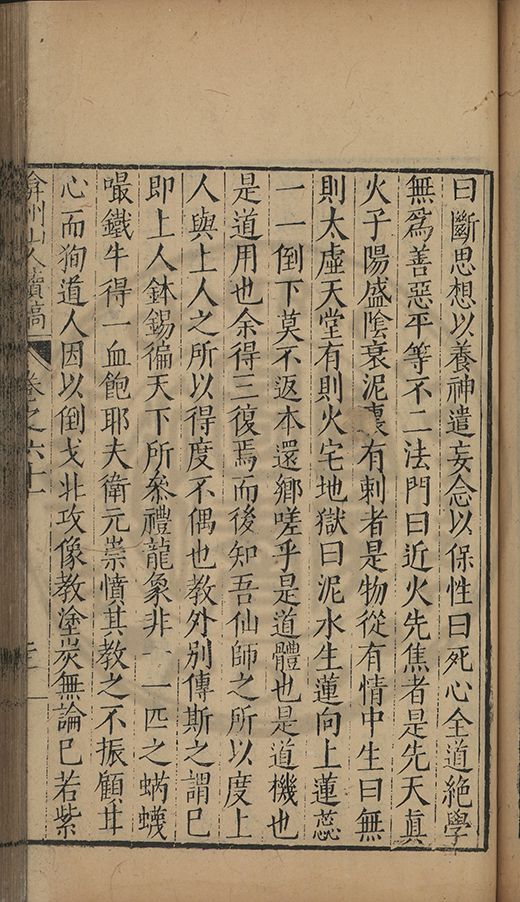 曰斷思想以養神遣妄念以保性曰死心全道絕學
無爲善惡平等不二法門曰近火先焦者是先天真
火子陽盛陰衰泥裏有刺者是物從有情中生曰無
則太虛天堂有則火宅地獄曰泥水生蓮向上蓮蕊
一一倒下莫不返本還鄉嗟乎是道體也是道機也
是道用也余得三復焉而後知吾仙師之所以度上
人與上人之所以得度不偶也教外別傳斯之謂已
即上人鉢錫徧天下所叅禮龍象非一一匹之蝸蠛
嘬鐵牛得一血飽耶夫衛元崇憤其教之不振顧其
心而狥道人因以倒戈北攻像教塗炭無論已若紫
弇州山人續稿 卷之六十一